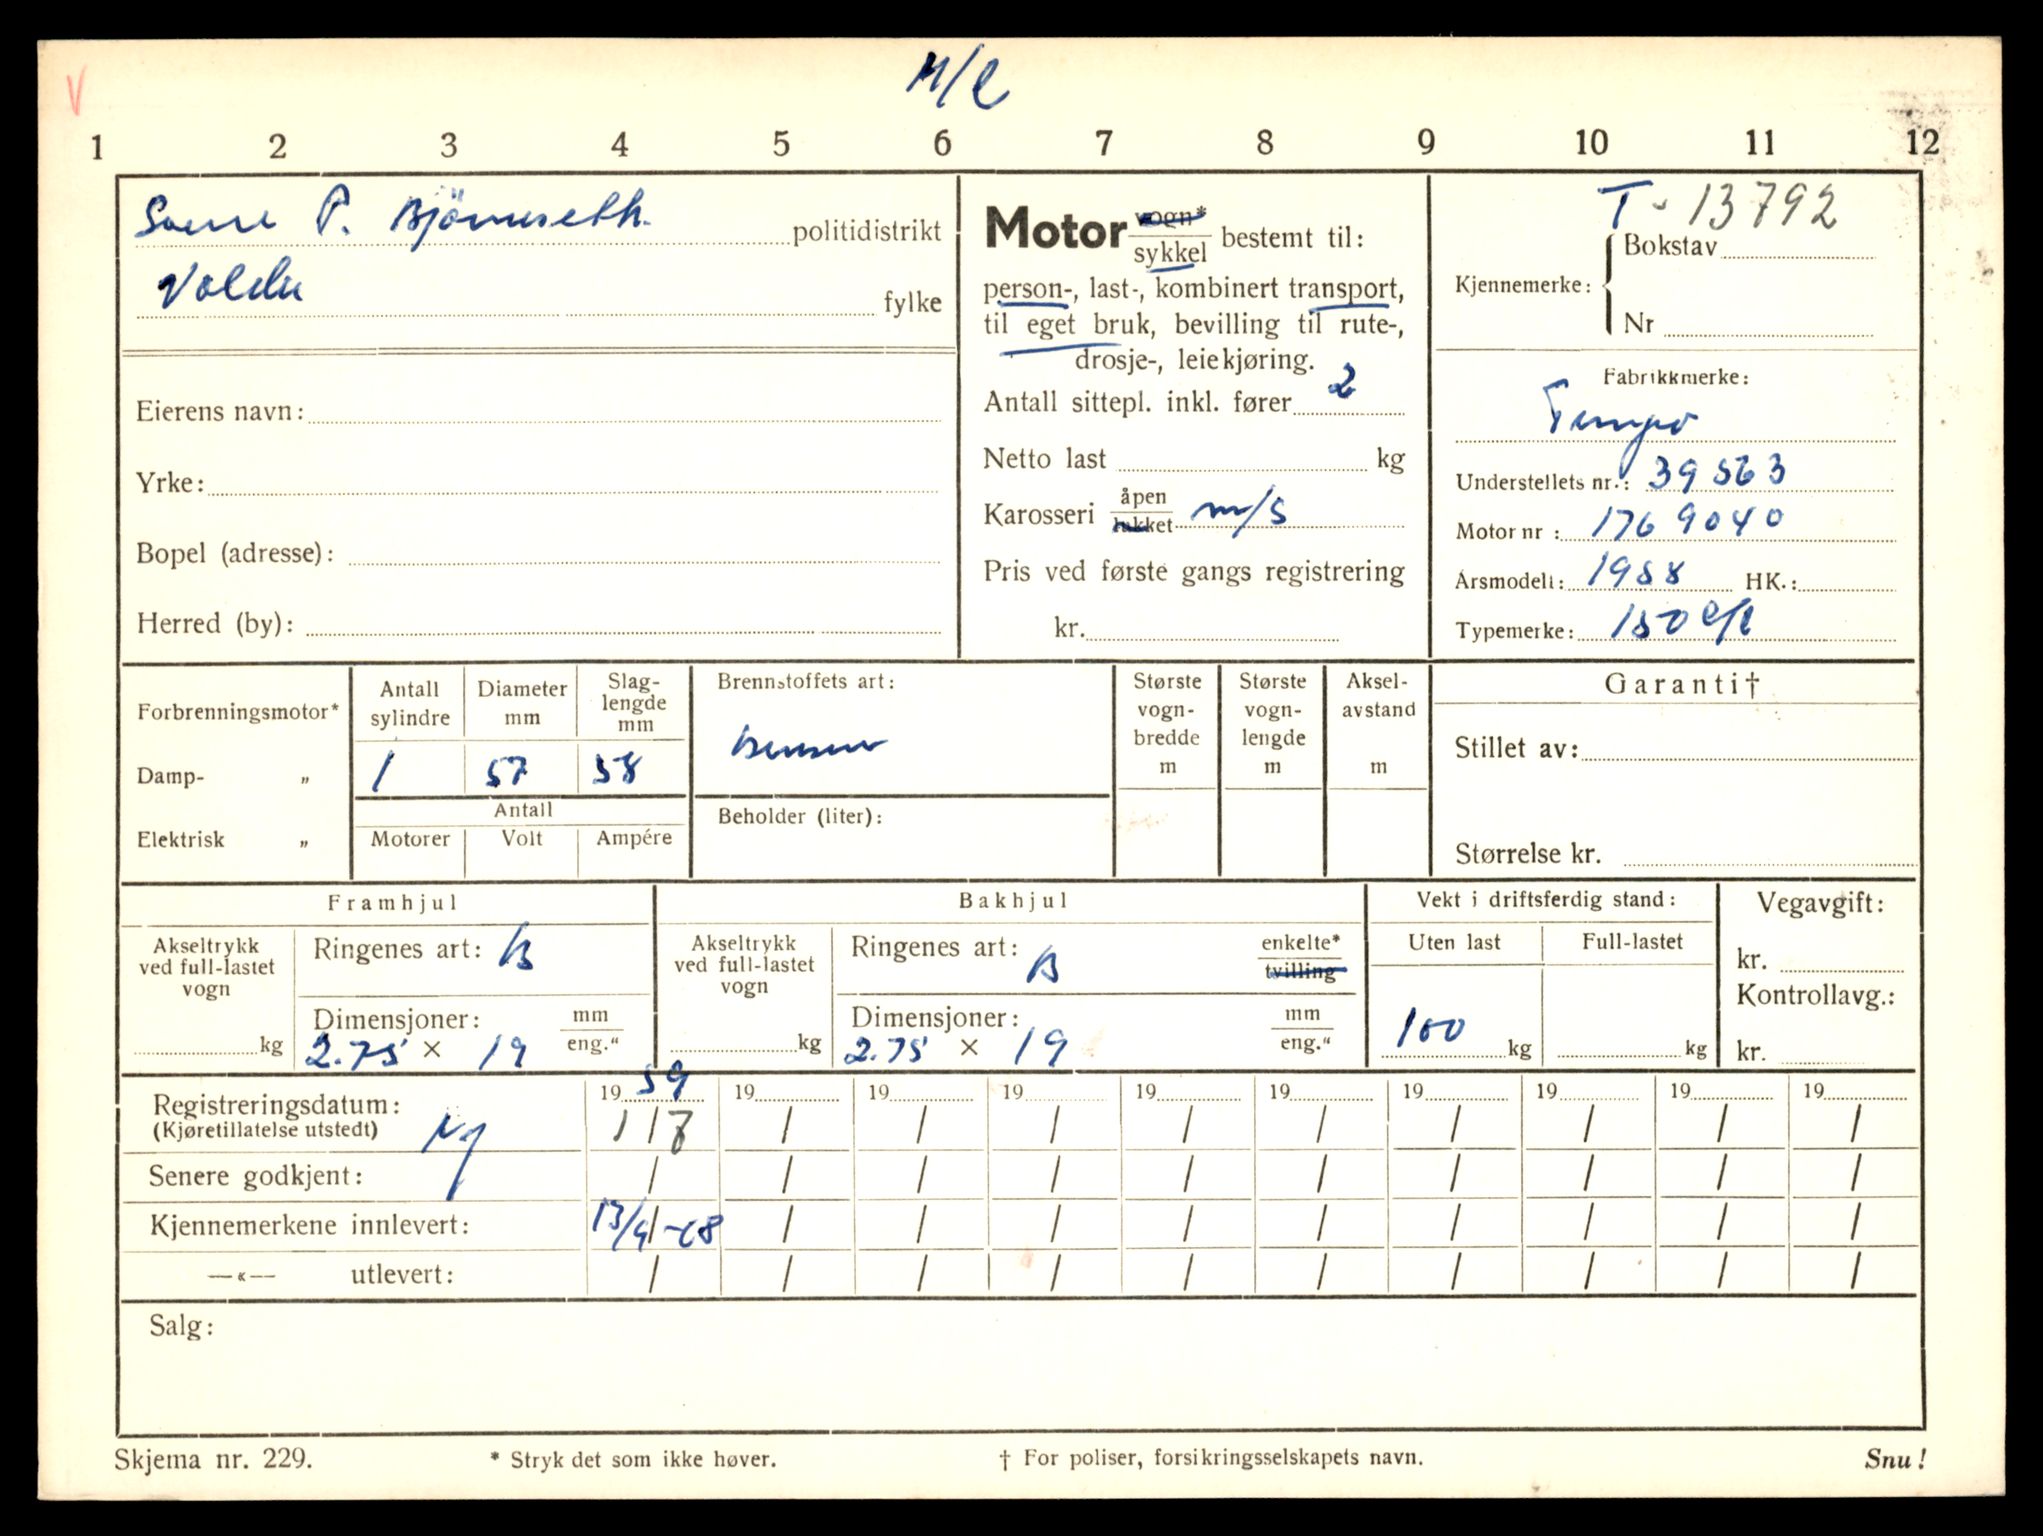 V
M/C
1 2 3 4 5 6 7 8 9 10 11 12
P. Bjørneseth. politidistrikt
Volda fylke
Eierens navn:
Yrke:
Bopel (adresse):
Herred (by):
Motor vogn* sykkel bestemt til:
person-, last-, kombinert transport,
til eget bruk, bevilling til rute-,
drosje-, leiekjøring.
Antall sittepl. inkl. fører 2
Netto last kg
Karosseri åpen lukket m/s
Pris ved første gangs registrering
kr.
T- 13792
Kjennemerke: Bokstav
Nr
Fabrikkmerke:
Tempo
Understellets nr.: 39563
Motor nr: 1769040
Årsmodell: 1958 HK.:
Typemerke: 150
Forbrenningsmotor*
Damp- „
Elektrisk „
Antall sylindre
Diameter mm
Slag-
lengde
mm
1 57 58
Antall
Motorer Volt Ampére
Brennstoffets art:
Bensin
Beholder (liter):
Største
vogn-
bredde
m
Største
vogn-
lengde
m
Aksel-
avstand
m
Garanti†
Stillet av:
Størrelse kr.
Framhjul
Akseltrykk
ved full-lastet
vogn
kg
Ringenes art: B
Dimensjoner: mm
2.75 × 19 eng."
Bakhjul
Akseltrykk
ved full-lastet
vogn
kg
Ringenes art: B enkelte*
tvilling
Dimensjoner: mm
2.75 × 19 eng."
Vekt i driftsferdig stand:
Uten last Full-lastet
100 kg kg
Vegavgift:
kr.
Kontrollavg.:
kr.
19 59 19 19 19 19 19 19 19 19 19
Registreringsdatum: Ny 1/7 / / / / / / / / /
(Kjøretillatelse utstedt)
Senere godkjent: / / / / / / / / / /
Kjennemerkene innlevert: 13/9 -68 / / / / / / / / /
—«— utlevert: / / / / / / / / / /
Salg:
Skjema nr. 229. * Stryk det som ikke høver. † For poliser, forsikringsselskapets navn. Snu!